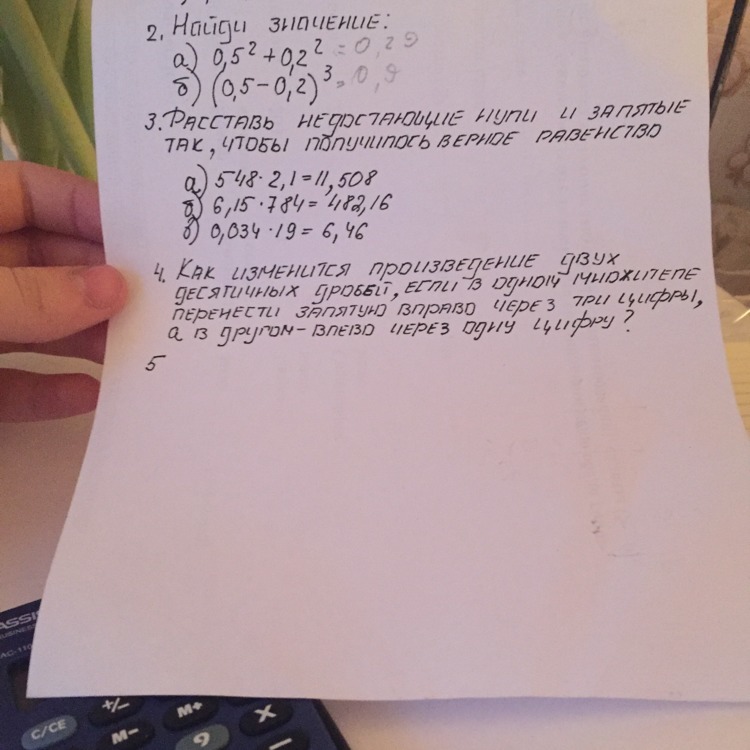 2. Найди значение:
а) 0,5² + 0,2² = 0,29
б) (0,5 - 0,2)³ = 0,9
3. Расставь недостающие нули и запятые
так, чтобы получилось верное равенство
а) 548 · 2,1 = 11,508
б) 6,15 · 784 = 482,16
в) 0,034 · 19 = 6,46
4. Как изменится произведение двух
десятичных дробей, если в одном множителе
перенести запятую вправо через три цифры,
а в другом - влево через одну цифру?
5
ASSI
BUSINESS
AC-110
C/CE
+/-
M+
M-
9
X
-